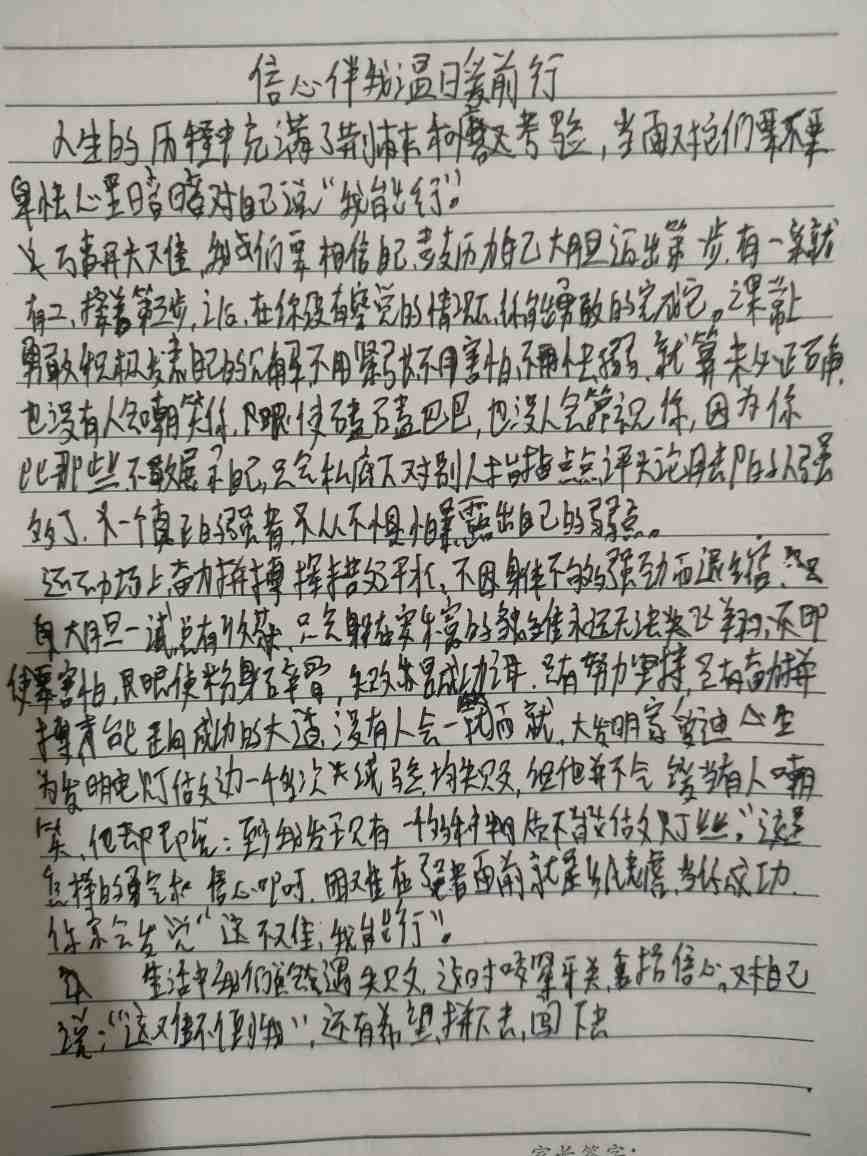 信心伴我温暖前行
人生的历程中充满了荆棘和磨难考验,当面对它们要不要
胆怯心里暗暗对自己说"我能行"。
万事开头难,我们要相信自己,鼓励自己大胆迈出第一步,有一就
有二,接着第三步,之后,在你没有察觉的情况下,你能勇敢的完成它。课堂上
勇敢积极发表自己的见解不用紧张不用害怕,不用怯弱,就算未必正确,
也没有人会嘲笑你,即使磕磕巴巴,也没人会笑话你,因为你
比那些不敢展示自己,只会私底下对别人指指点点评头论足的人强
多了,一个真正的强者,从不惧怕暴露出自己的弱点。
运动场上,奋力拼搏发挥水平,不因身体不够强劲而退缩,
大胆一试总有收获,只会躲在安乐窝的雏鹰永远无法飞翔,不
要害怕,即使粉身碎骨,失败是成功之母,只有努力坚持,只有奋力拼
搏才能走向成功的大道,没有人会一蹴而就,大发明家爱迪生
为发明电灯做过一千多次试验,均失败,但他并不会当有人嘲
笑,他却说:"至少我发现有一千多种物质不能做灯丝。"这是
怎样的勇气和信心啊,困难在强者面前就是,当你成功,
你会发觉"这不难,我能行"。
生活中我们会遇失败,这时咬紧牙关,重拾信心,对自己
说:"这难不倒我",还有希望,拼下去,闯下去
家长签字: